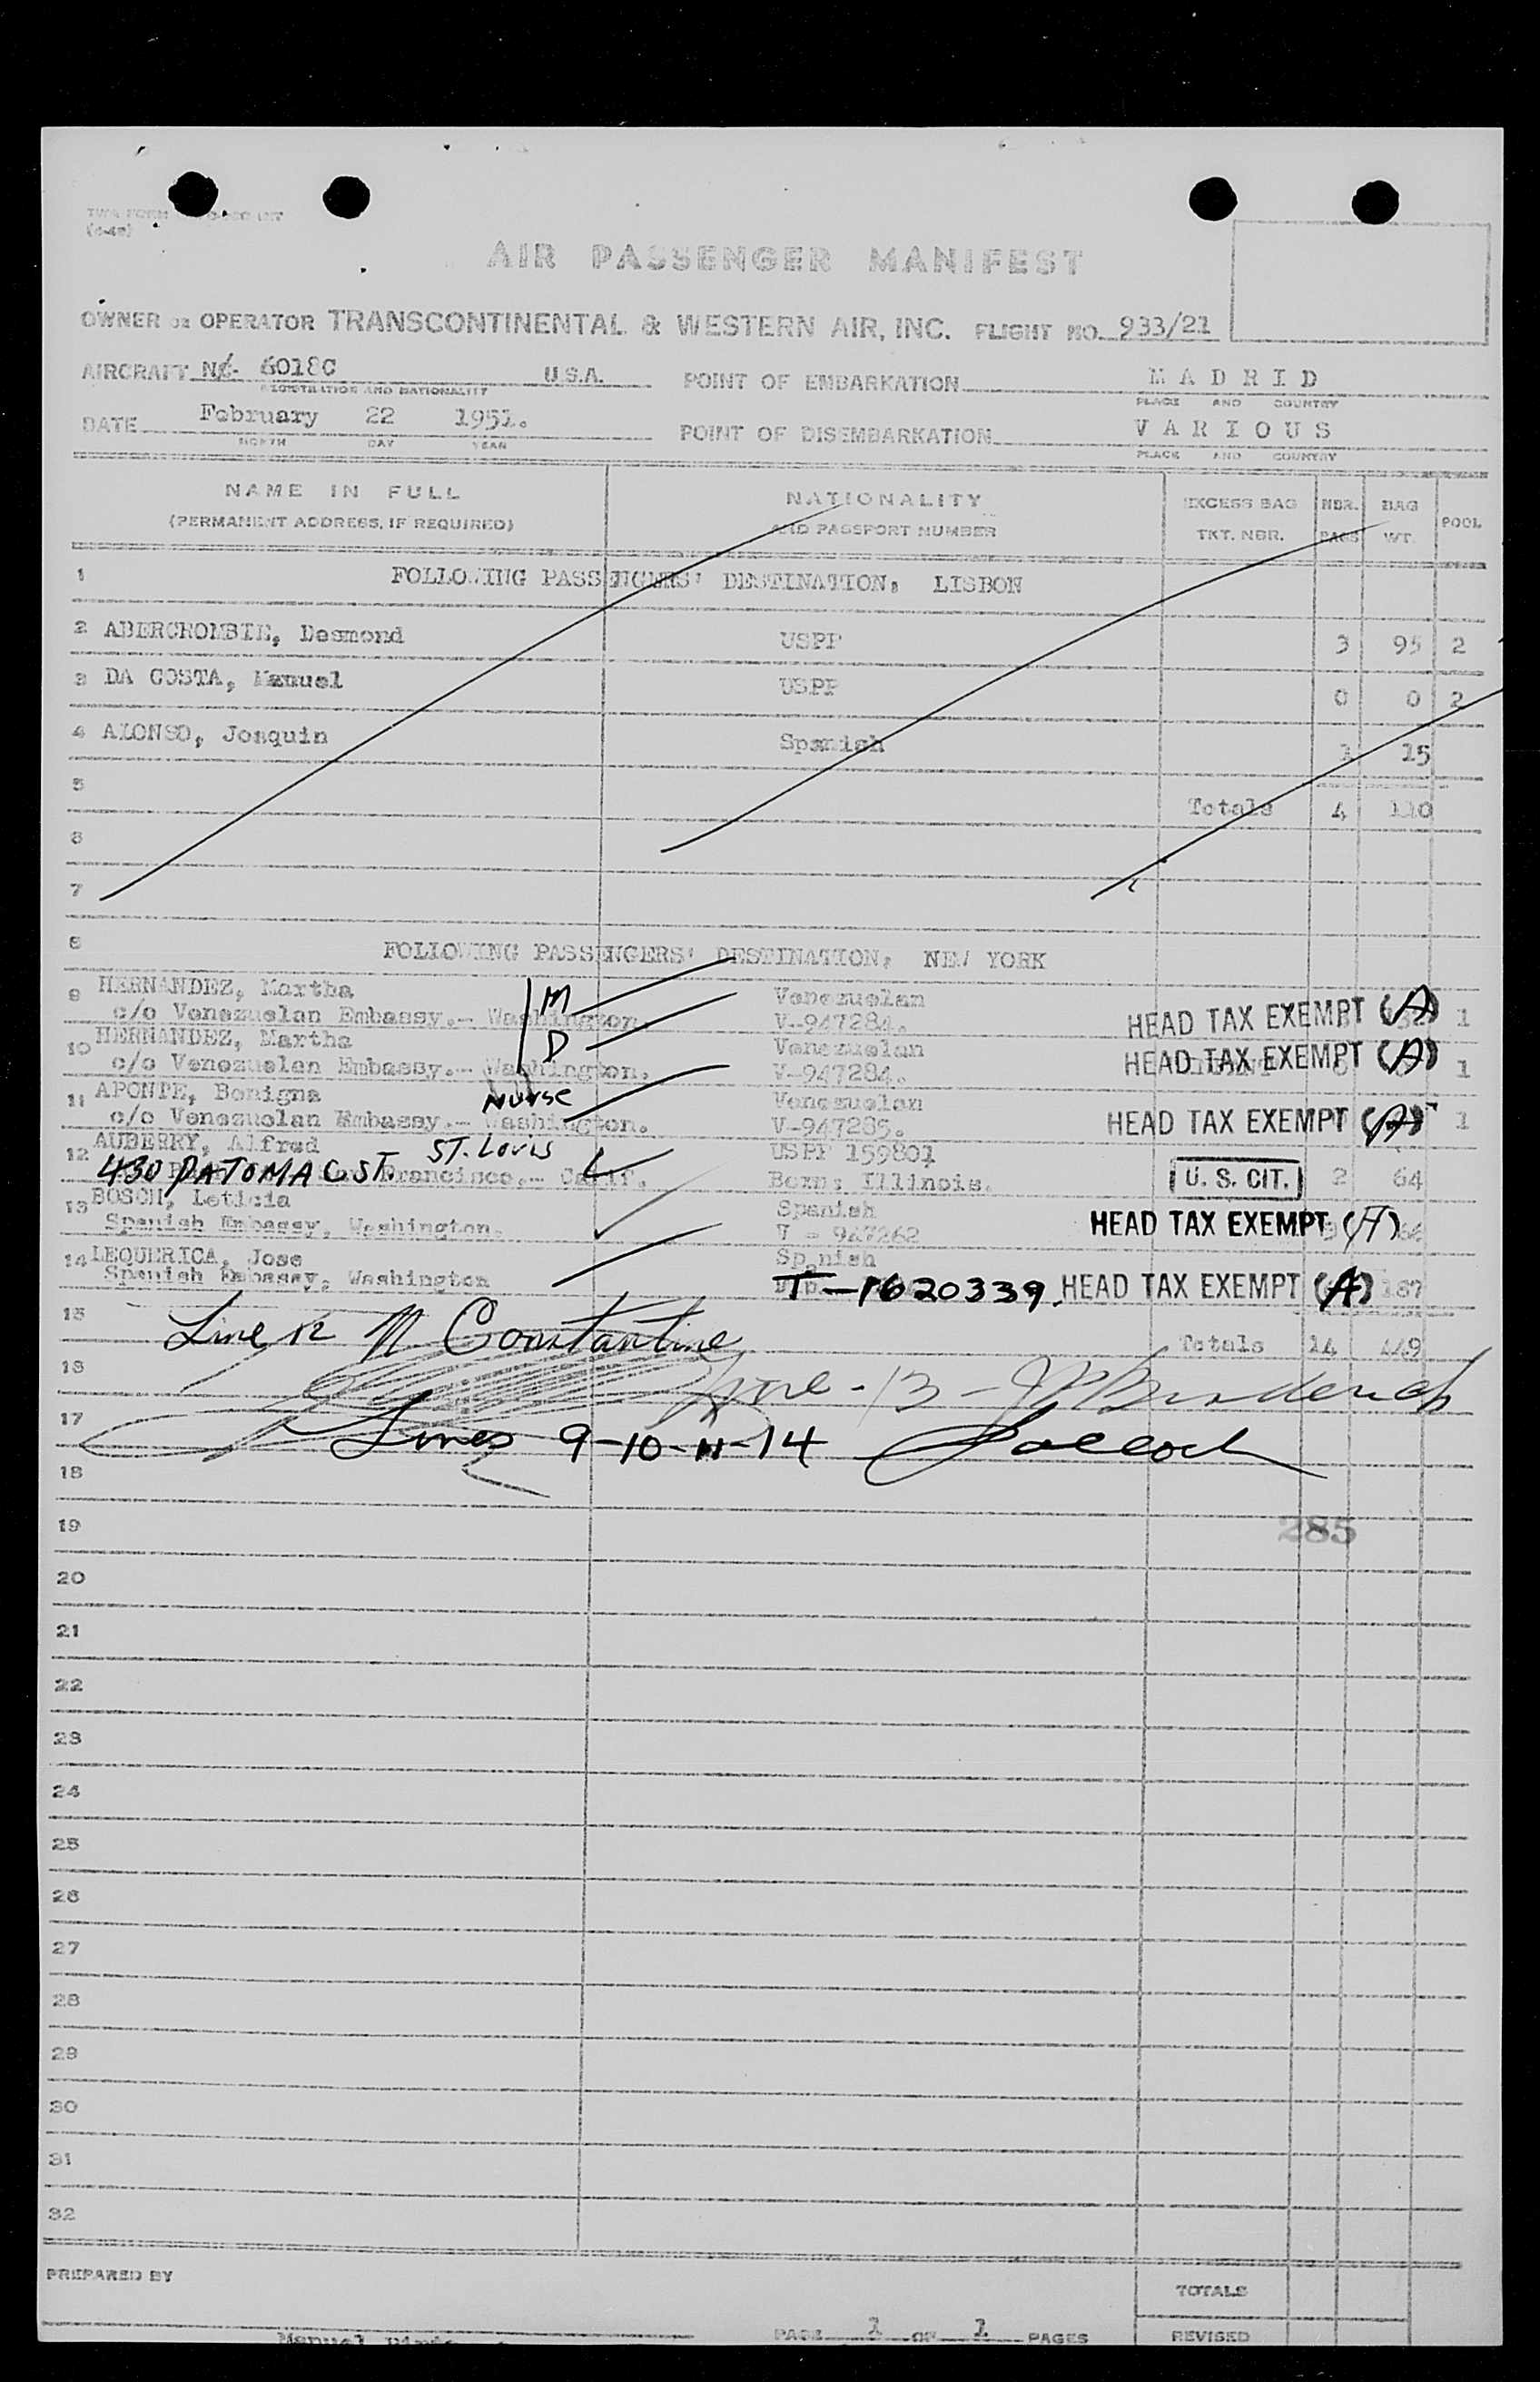 TWA FORM
AIR PASSENGER MANIFEST
OWNER OR OPERATOR TRANSCONTINENTAL & WESTERN AIR, INC. FLIGHT NO. 933/21
AIRCRAFT 6018C U.S.A. POINT OF EMBARKATION MADRID
REGISTRATION AND NATIONALITY PLACE AND COUNTRY
DATE February 22 1951. POINT OF DISEMBARKATION VARIOUS
MONTH DAY YEAR PLACE AND COUNTRY
NAME IN FULL NATIONALITY EXCESS BAG NBR. BAG POOL
(PERMANENT ADDRESS, IF REQUIRED) AND PASSPORT NUMBER TKT. NBR. PAGS WT.
1 FOLLOWING PASSENGERS' DESTINATION: LISBON
2 ABERCROMBIE, Desmond USPP 3 95 2
3 DA COSTA, Manuel USPP 0 0 2
4 ALONSO, Joaquin Spanish 1 15
5 Totals 4 110
6
7
8 FOLLOWING PASSENGERS' DESTINATION: NEW YORK
9 HERNANDEZ, Martha M Venezuelan
c/o Venezuelan Embassy.- Washington. V-947284. HEAD TAX EXEMPT (A) 1
10 HERNANDEZ, Martha D Venezuelan
c/o Venezuelan Embassy.- Washington. V-947284. HEAD TAX EXEMPT (A) 1
11 APONTE, Benigna Nurse Venezuelan
c/o Venezuelan Embassy.- Washington. V-947285. HEAD TAX EXEMPT (A) 1
12 AUBERRY, Alfred ST. LOUIS USPP 159801
430 PATOMAC ST. Francisco.- Calif. Born: Illinois. U. S. CIT. 2 64
13 BOSCH, Leticia Spanish
Spanish Embassy, Washington. V - 947262 HEAD TAX EXEMPT (A) 64
14 LEQUERICA, Jose Spanish
Spanish Embassy, Washington T-1620339. HEAD TAX EXEMPT (A) 187
15 Line 12 N Constantine Totals 14 449
16 Line - 13 -
17 Lines 9-10-11-14 Pollock
18
19 285
20
21
22
23
24
25
26
27
28
29
30
31
32
PREPARED BY TOTALS
Manuel PAGE 1 OF 1 PAGES REVISED